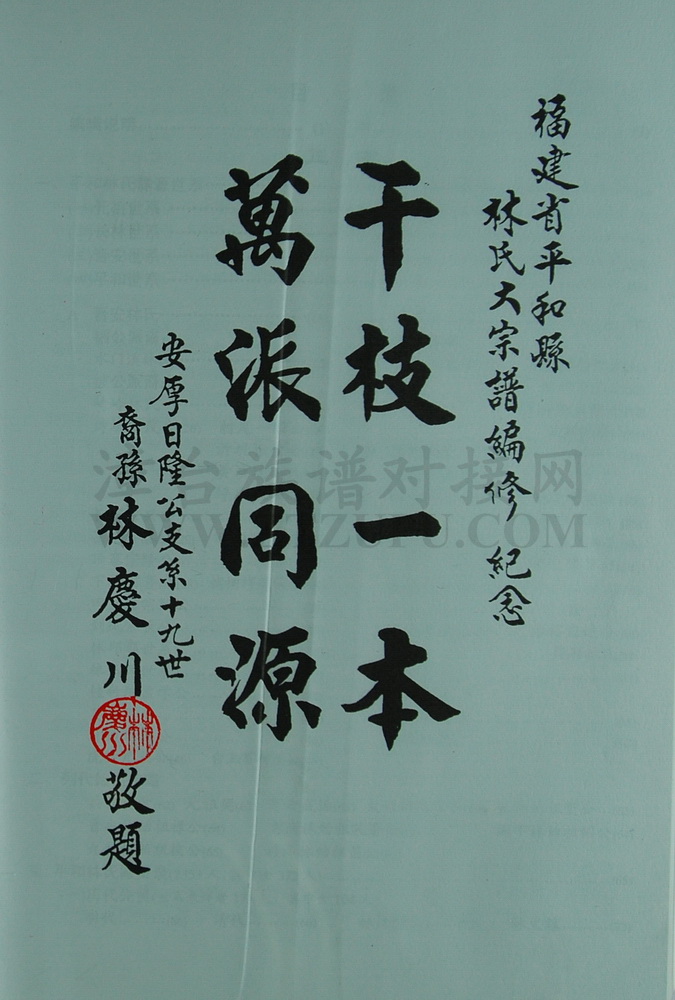 福建省平和縣
林氏大宗譜編修 紀念
千枝一本
萬派同源
安厚日隆公支系十九世
裔孫林慶川敬題
林慶川